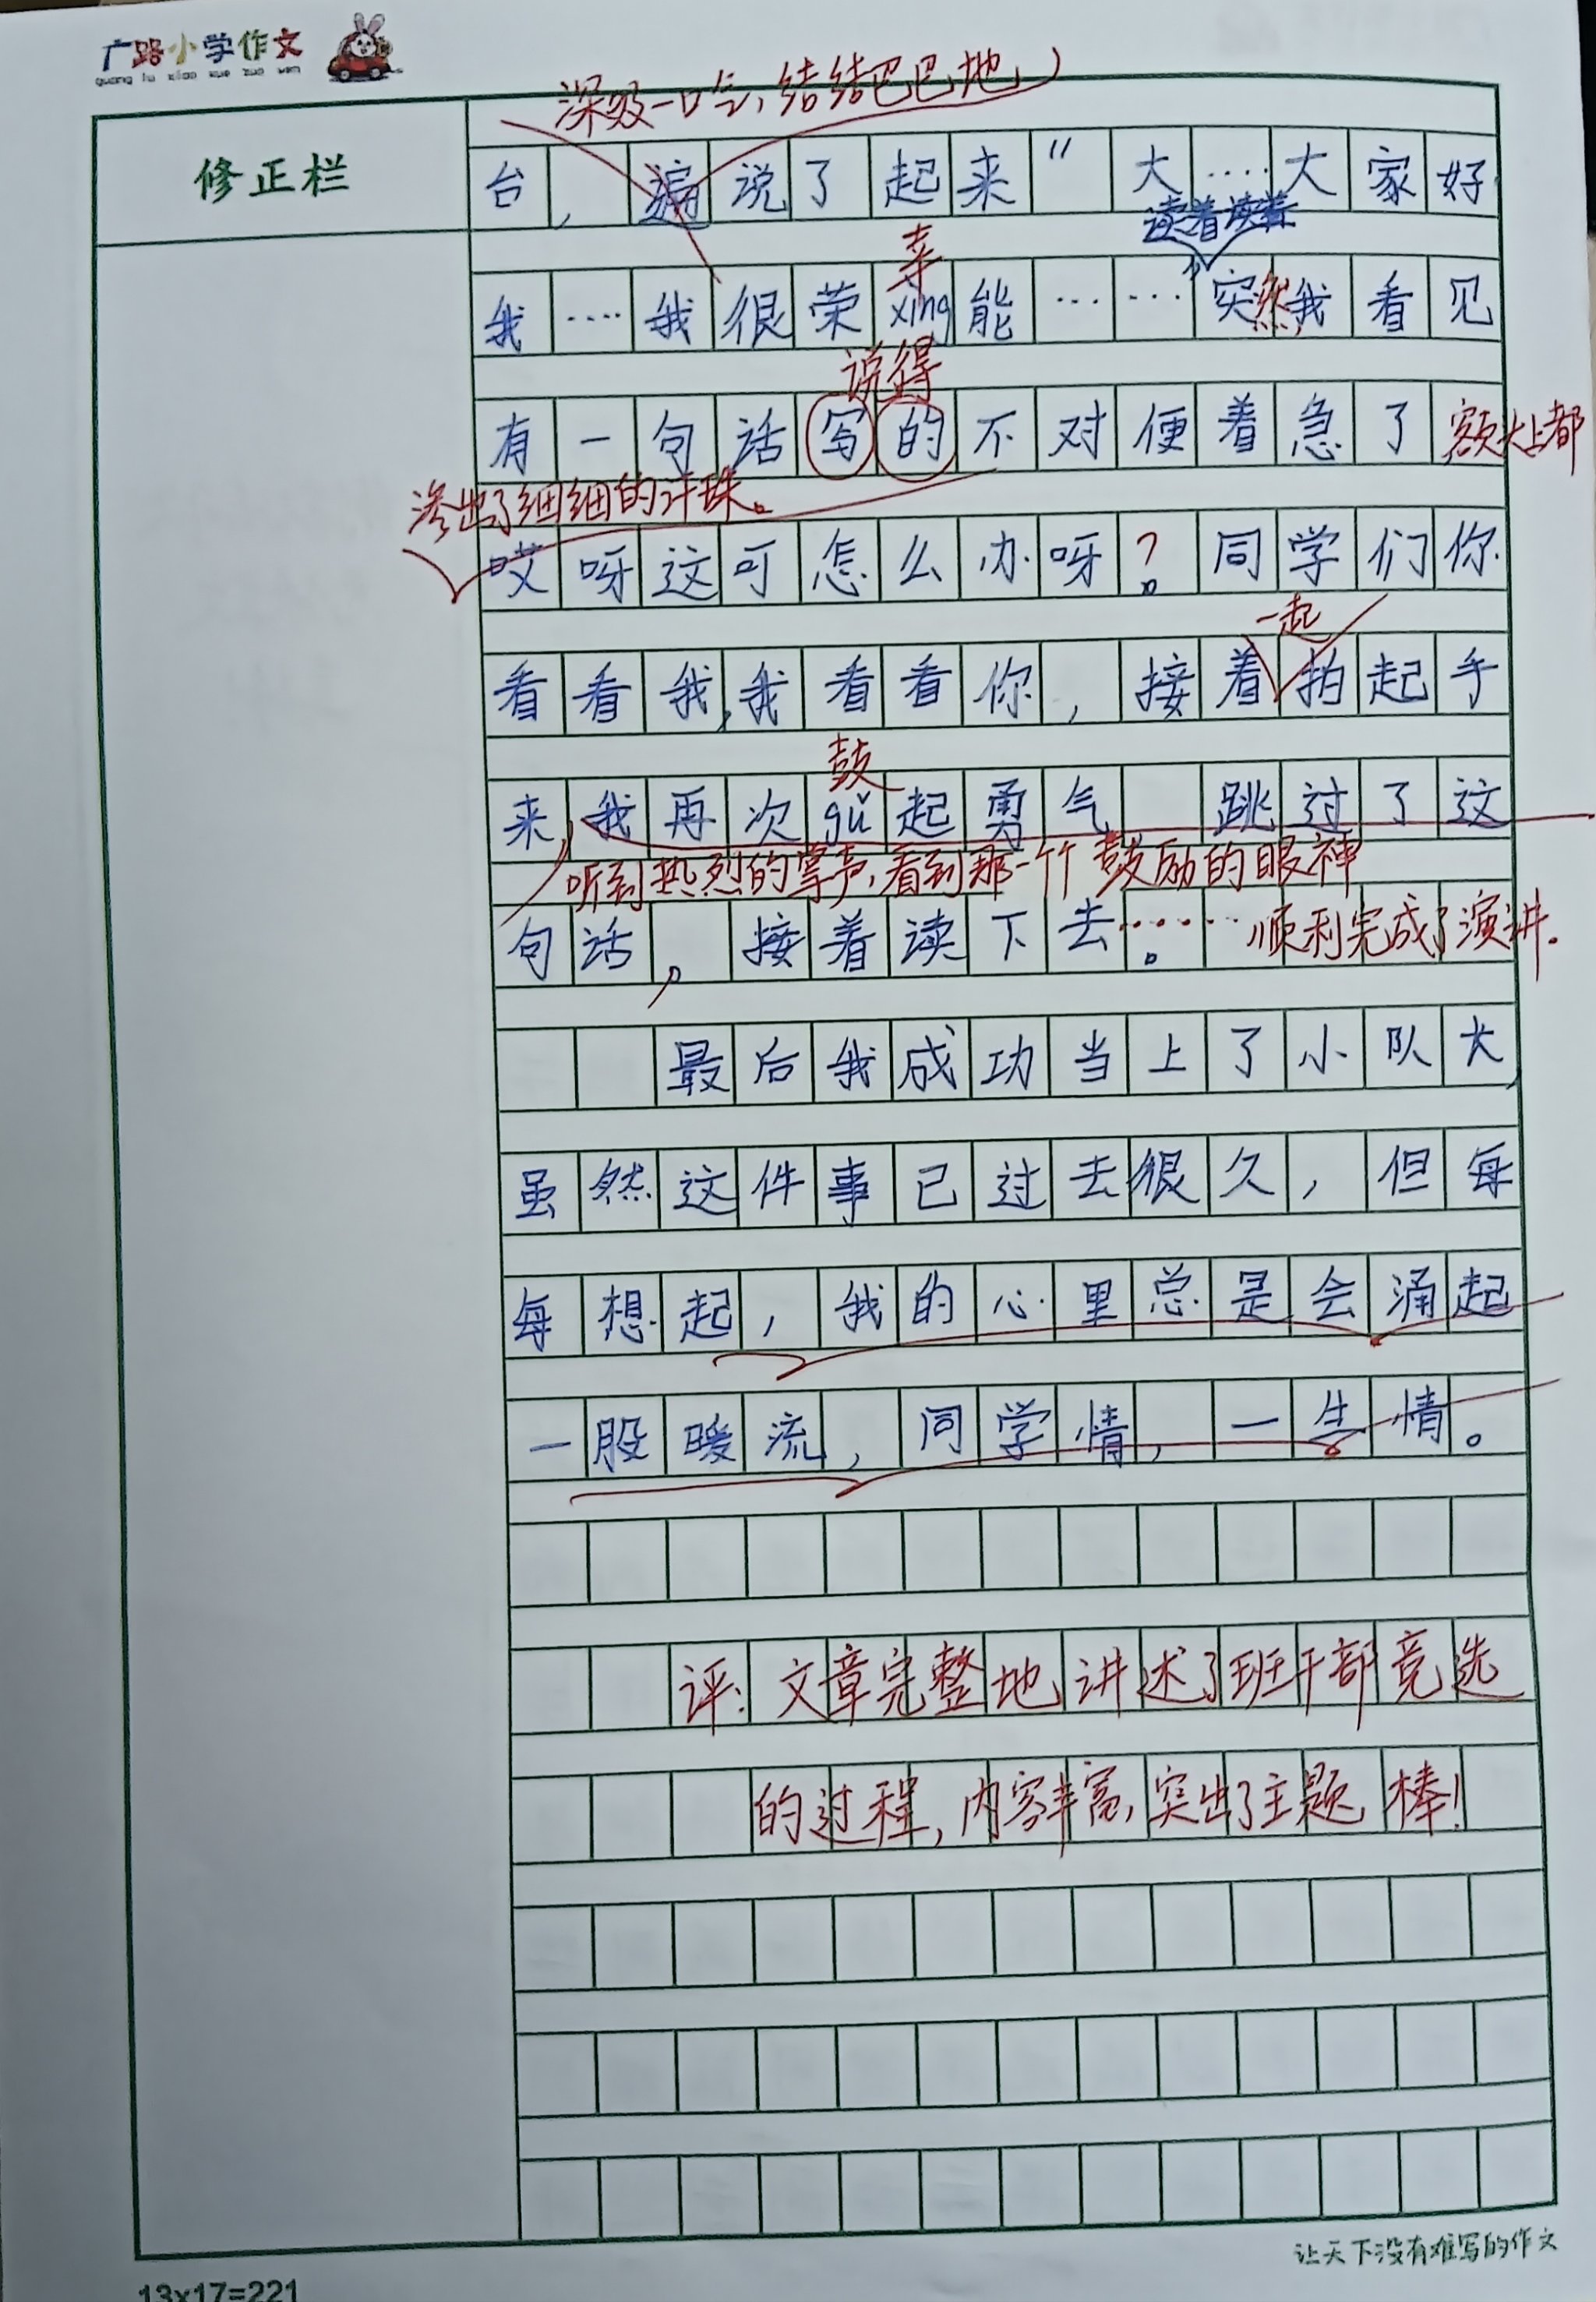 广路小学作文
guang lu xiao xue zuo wen
修正栏
深吸一口气，结结巴巴地
台，遍说了起来“大……大家好
读着读着
幸
我……我很荣xing能……，突然我看见
说得
有一句话写的不对便着急了额头上都
渗出了细细的汁珠。
哎呀这可怎么办呀？。同学们你
一起
看看我，我看看你，接着拍起手
鼓
来，我再次gǔ起勇气 跳过了这
听到热烈的掌声，看到那一个个鼓励的眼神
句话，接着读下去。……顺利完成了演讲。
最后我成功当上了小队长，
虽然这件事已过去很久，但每
每想起，我的心里总是会涌起
一股暖流，同学情，一生情。
评：文章完整地讲述了班干部竞选
的过程，内容丰富，突出了主题，棒！
让天下没有难写的作文
13x17=221